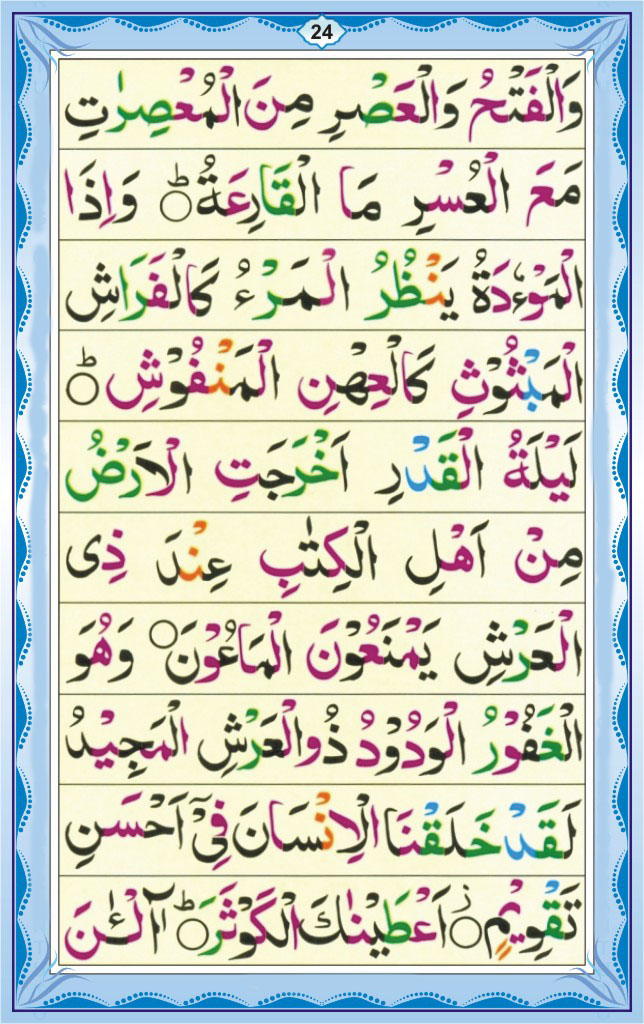 24
وَالْفَتْحُ وَالْعَصْرِ مِنَ الْمُعْصِرٰتِ
مَعَ الْعُسْرِ مَا الْقَارِعَةُ ۝ؕ وَاِذَا
الْمَوْءٗدَةُ يَنْظُرُ الْمَرْءُ كَالْفَرَاشِ
الْمَبْثُوْثِ كَالْعِهْنِ الْمَنْفُوْشِ ۝ؕ
لَيْلَةُ الْقَدْرِ اَخْرَجَتِ الْاَرْضُ
مِنْ اَهْلِ الْكِتٰبِ عِنْدَ ذِى
الْعَرْشِ يَمْنَعُوْنَ الْمَاعُوْنَ ۝ وَهُوَ
الْغَفُوْرُ الْوَدُوْدُ ذُوالْعَرْشِ الْمَجِيْدُ
لَقَدْ خَلَقْنَا الْاِنْسَانَ فِىْۤ اَحْسَنِ
تَقْوِيْمٍ ۝ز اَعْطَيْنٰكَ الْكَوْثَرَ ۝ؕ آٰلْـٰٔنَ